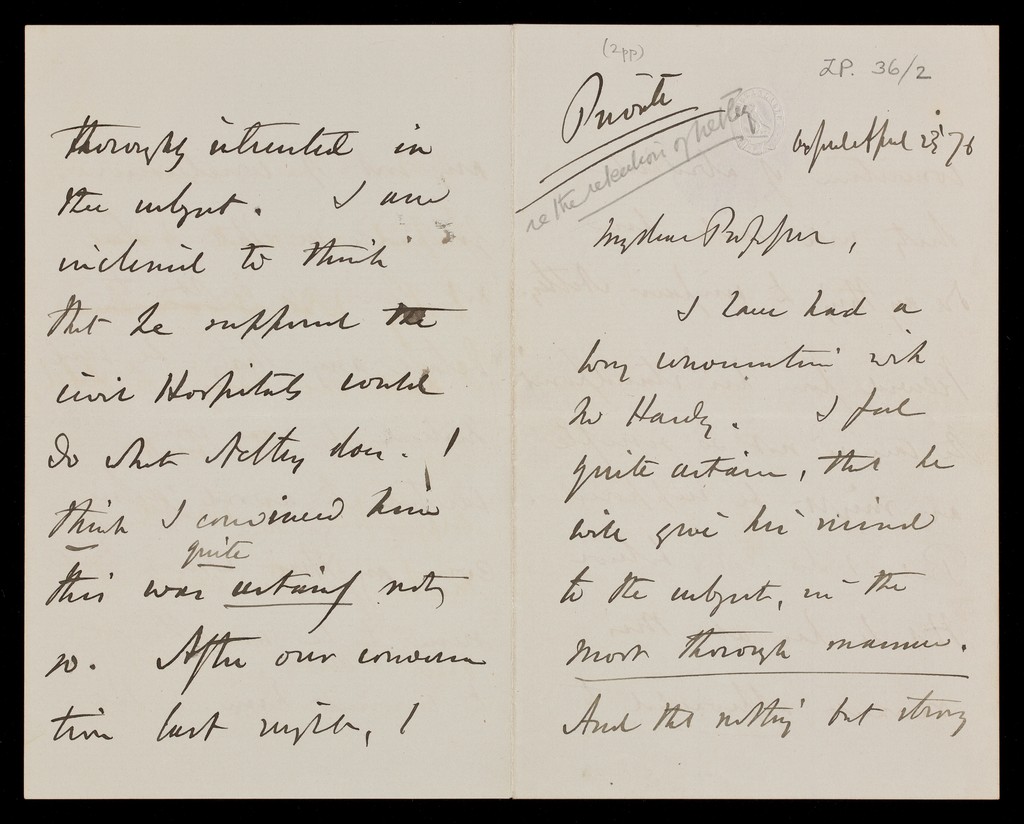 (2pp)
ZP. 36/2
Private
re the retention of Netley
April 23 / 76
My dear Professor,
I have had a
long conversation with
Mr Hardy. I feel
quite certain, that he
will give his mind
to the subject, in the
most thorough manner.
And that nothing but strong
thoroughly interested in
the subject. I am
inclined to think
that he supposed the
civil Hospitals could
do what Netley does. I
think I convinced him
quite
this was certainly not
so. After our conversa
tion last night, I